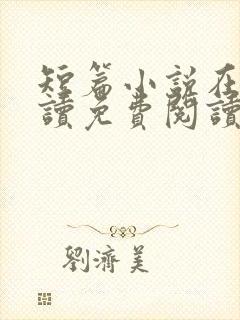 短篇小說在
讀免費閱讀
劉濟美